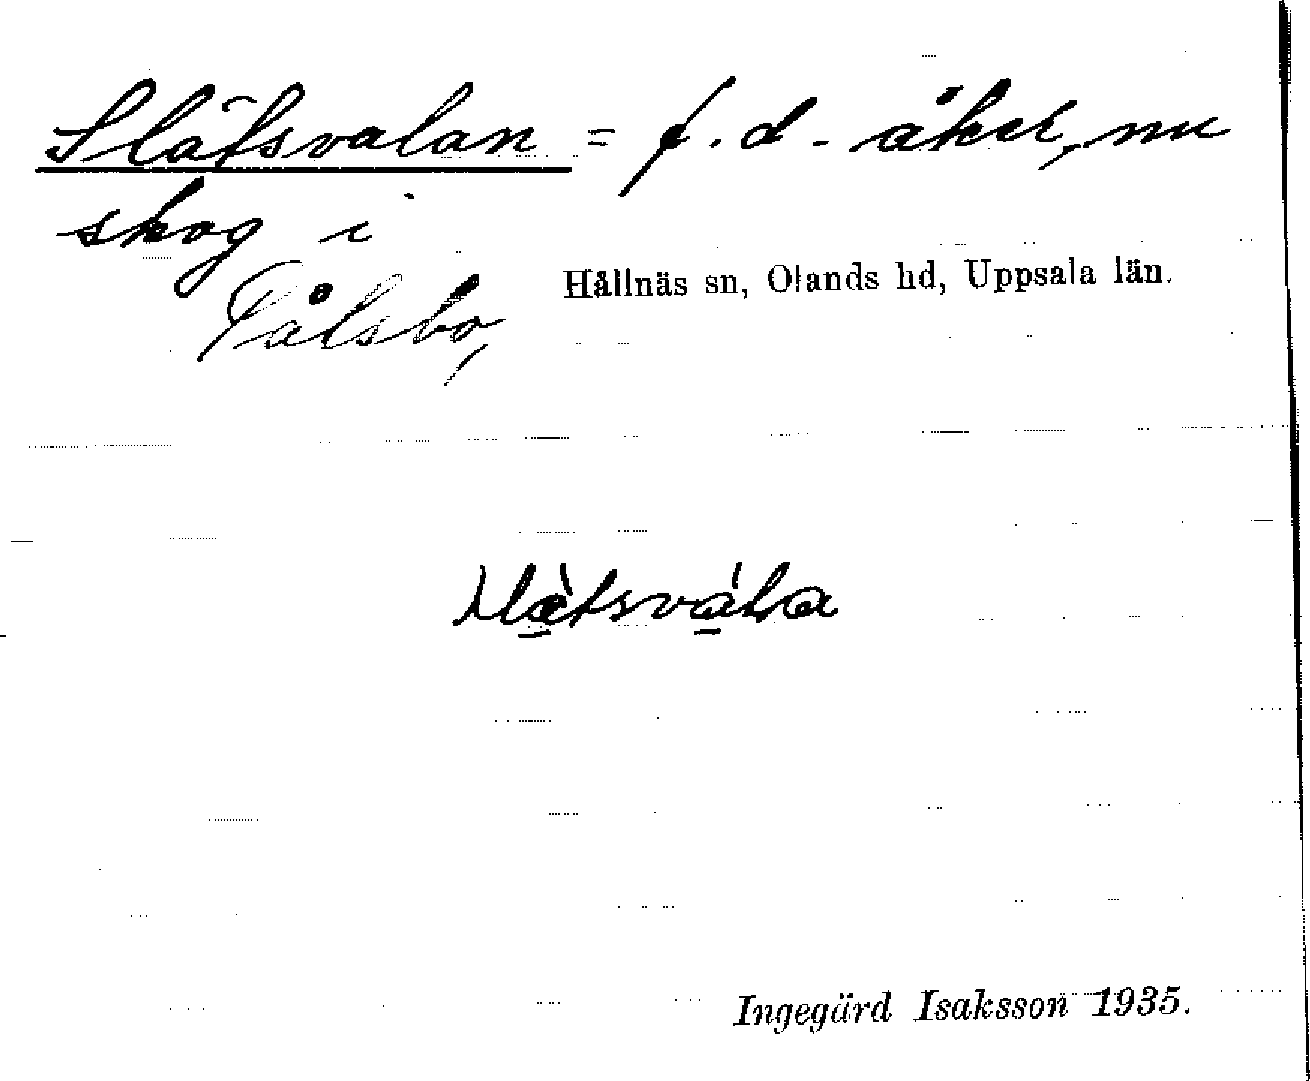 Slätsvalan = f. d. åker, nu
skog i
Pålsbo,
Hållnäs sn, Olands hd, Uppsala län.
Ingegärd Isaksson 1935.